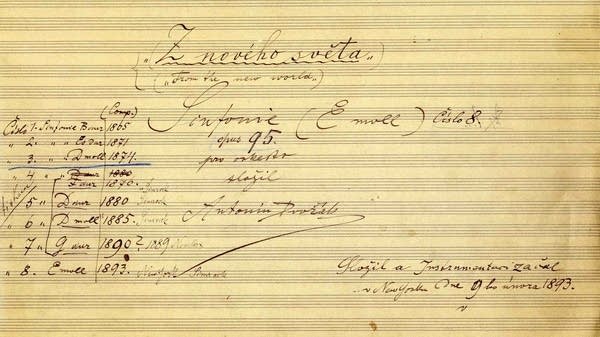 „Z nového světa„
(„From the new world„)
Sinfonie (E moll) Číslo 8.
opus 95.
pro orkestr
složil
Antonín Dvořák
(Comp.)
Číslo 1. Sinfonie B dur 1865
„ 2. „ Es dur 1871
„ 3. „ D moll 1874.
„ 4 „ D dur 1880
F dur 1870.
„ 5 „ D dur 1880
„ 6 „ D moll 1885.
„ 7 „ G dur 1890? 1889
„ 8. E moll 1893. New York
Složil a Instrumentaci začal
v New Yorku Dne 9ho února 1893.